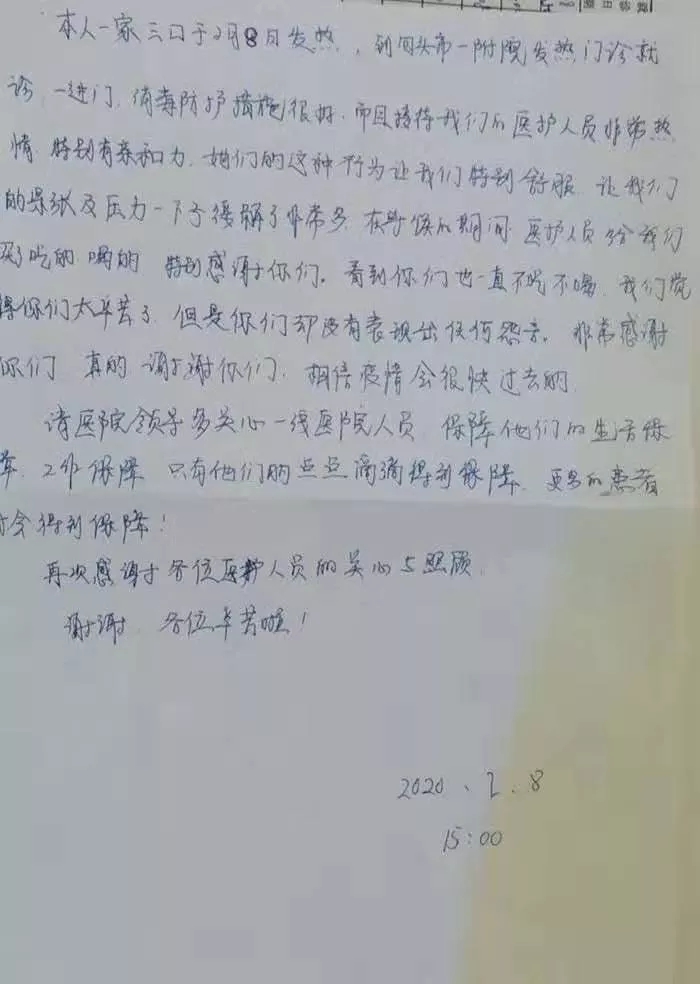 本人一家三口于2月8日发热，到包头市一附院发热门诊就
诊，一进门，消毒防护措施很好，而且接待我们的医护人员非常热
情，特别有亲和力，她们的这种行为让我们特别舒服，让我们
的紧张及压力一下子缓解了非常多，在等候的期间，医护人员给我们
买吃的，喝的，特别感谢你们。看到你们也一直不吃不喝，我们觉
得你们太辛苦了，但是你们却没有表现出任何怨言。非常感谢
你们，真的谢谢你们，相信疫情会很快过去的，
请医院领导多关心一线医院人员，保障他们的生活保
障，工作保障，只有他们的点点滴滴得到保障，更多的患者
才会得到保障！
再次感谢各位医护人员的关心与照顾，
谢谢，各位辛苦啦！
2020、2、8
15:00